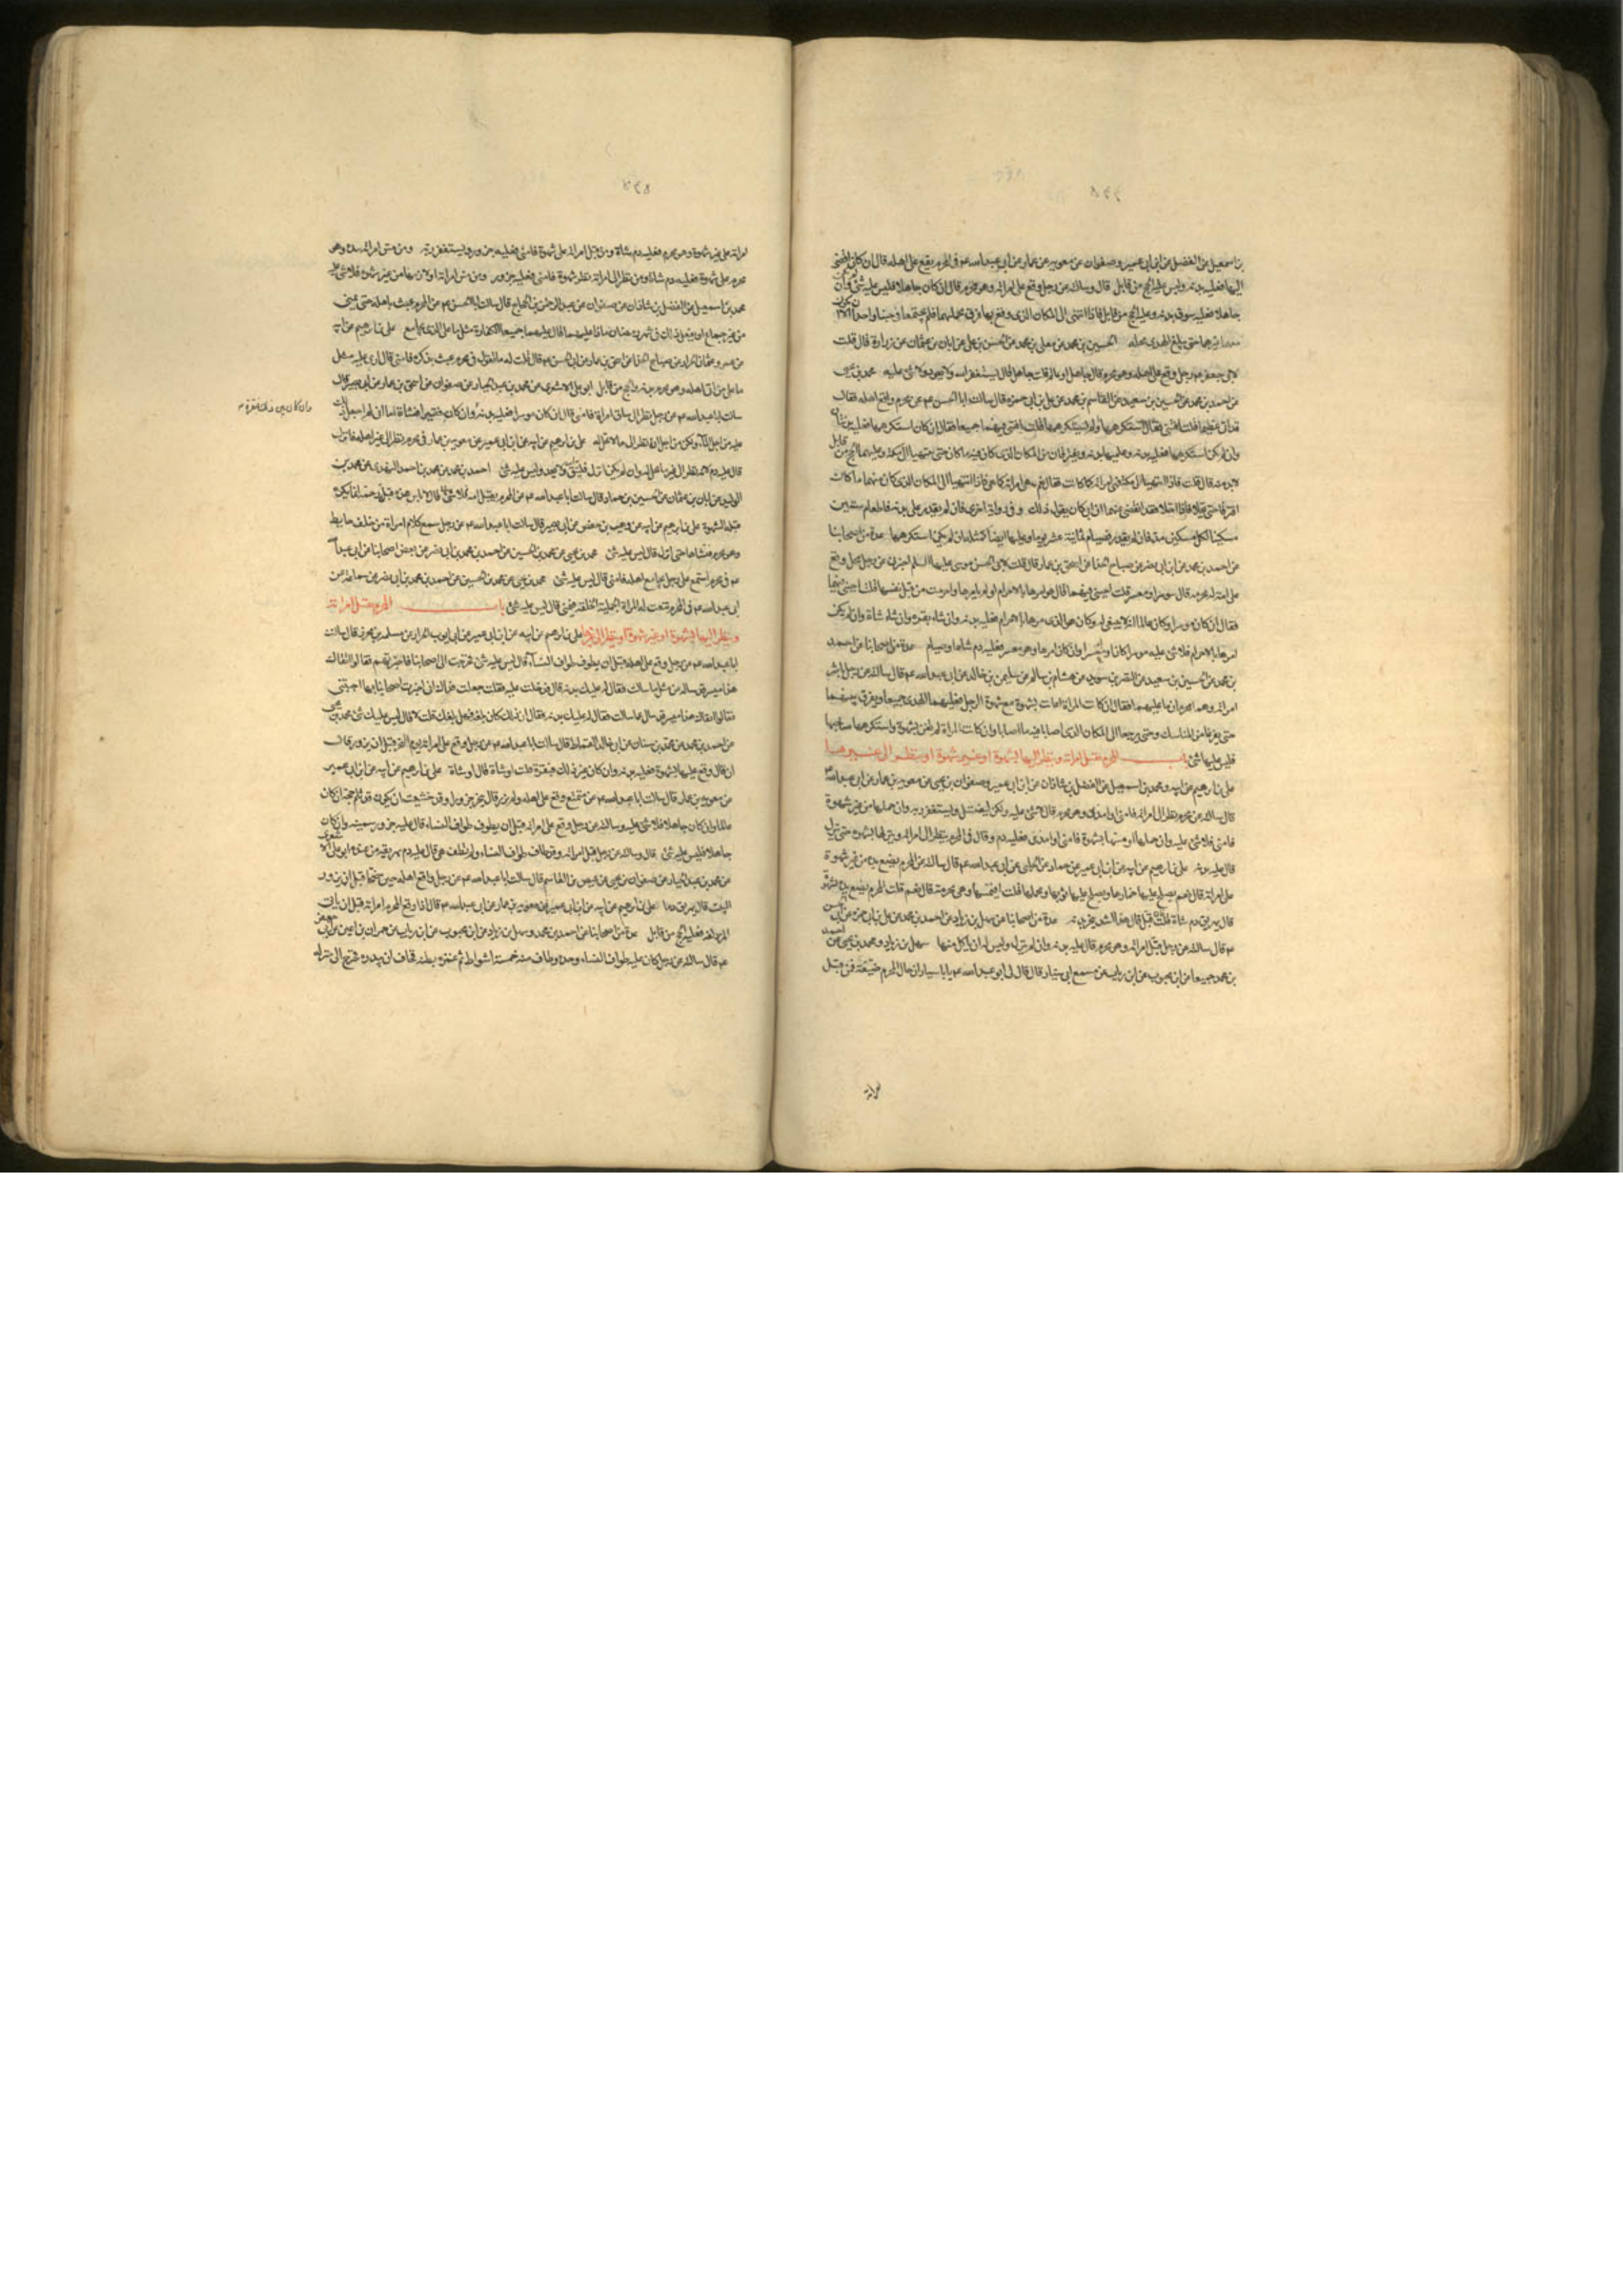 بن اسمعيل عن الفضل عن ابن ابى عمير وصفوان عن معويه بن عمار عن ابى عبد الله عم فى المحرم يقع على اهله قال ان كان افضى
اليها فعليه بدنه والحج من قابل قال وسالته عن رجل وقع على امراته وهو محرم قال ان كان جاهلا فليس عليه شئ وان لم يكن
جاهلا فعليه سوق بدنه وعليه الحج من قابل فاذا انتهى الى المكان الذى وقع بها فرق محملهما فلم يجتمعا فى خبا واحد الا ان يكون
معهما غيرهما حتى يبلغ الهدى محله الحسين بن محمد عن معلى بن محمد عن الحسن بن على عن ابان بن عثمان عن زرارة قال قلت
لابى جعفر عم رجل وقع على اهله وهو محرم قال جاهل او عالم قلت جاهل قال يستغفر الله ولا يعود ولا شئ عليه محمد بن يحيى
عن احمد بن محمد عن الحسين بن سعيد عن القاسم بن محمد عن على بن ابى حمزه قال سالت ابا الحسن عم عن محرم واقع اهله فقال
قد اتى عظيما قلت افتنى فقال استكرهها او لم يستكرهها قلت افتنى فيهما جميعا فقال ان كان استكرهها فعليه بدنتان
وان لم يكن استكرهها فعليه بدنه وعليها بدنه ويفترقان من المكان الذى كان فيه ما كان حتى ينتهيا الى مكه وعليهما الحج من قابل
لابد منه قال قلت فاذا انتهيا الى مكه فهى امراته كما كانت فقال نعم هى امراته كما هى فاذا انتهيا الى المكان الذى كان منهما ما كان
افترقا حتى يحلا فاذا احلا فقد انقضى عنهما ان ابى كان يقول ذلك وفى رواية اخرى فان لم يقدر على بدنه فاطعام ستين
مسكينا لكل مسكين مد فان لم يقدر فصيام ثمانية عشر يوما وعليها ايضا كمثله ان لم يكن استكرهها عدة من اصحابنا
عن احمد بن محمد عن ابن ابى نصر عن صباح الحذا عن اسحق بن عمار قال قلت لابى الحسن موسى عليه السلم اخبرنى عن رجل محل وقع
على امة له محرمه قال موسر او معسر قلت اجبنى فيهما قال هو امرها بالاحرام او لم يامرها او احرمت من قبل نفسها قلت اجبنى فيهما
فقال ان كان موسرا وكان عالما انه لا ينبغى له وكان هو الذى امرها بالاحرام فعليه بدنه وان شاء بقره وان شاء شاة وان لم يكن
امرها بالاحرام فلا شئ عليه موسرا كان او معسرا وان كان امرها وهو معسر فعليه دم شاه او صيام عدة من اصحابنا عن احمد
بن محمد عن الحسين بن سعيد عن النضر بن سويد عن هشام بن سالم عن سليمن بن خالد عن ابى عبد الله عم قال سالته عن رجل باشر
امراته وهما محرمان ما عليهما فقال ان كانت المراة اعانت بشهوة مع شهوة الرجل فعليهما الهدى جميعا ويفرق بينهما
حتى يفرغا من المناسك وحتى يرجعا الى المكان الذى اصابا فيه ما اصابا وان كانت المراة لم تعن بشهوة واستكرهها صاحبها
فليس عليها شئ باب المحرم يقبل امراته وينظر اليها بشهوة او غير شهوة او ينظر الى غيرها
على بن ابرهيم عن ابيه ومحمد بن اسمعيل عن الفضل بن شاذان عن ابن ابى عمير وصفوان بن يحيى عن معويه بن عمار عن ابى عبد الله عم
قال سالته عن محرم نظر الى امراته فامنى او امذى وهو محرم قال لا شئ عليه ولكن ليغتسل ويستغفر ربه وان حملها من غير شهوة
فامنى فلا شئ عليه وان حملها او مسها بشهوة فامنى او امذى فعليه دم وقال فى المحرم ينظر الى امراته وينزلها بشهوه حتى ينزل
قال عليه بدنه على بن ابرهيم عن ابيه عن ابن ابى عمير عن حماد عن الحلبى عن ابى عبد الله عم قال سالته عن المحرم يضع يده من غير شهوة
على امراته قال نعم يصلح عليها خمارها ويصلح عليها ثوبها ومحملها قلت افيمسها وهى محرمة قال نعم قلت المحرم يضع يده بشهوة
قال يهريق دم شاة قلت فان قبل قال هذا اشد ينحر بدنه عدة من اصحابنا عن سهل بن زياد عن احمد بن محمد عن على بن ابى حمزه عن ابى الحسن
عم قال سالته عن رجل قبل امراته وهو محرم قال عليه بدنه وان لم ينزل وليس له ان ياكل منها سهل بن زياد ومحمد بن يحيى عن احمد
بن محمد جميعا عن ابن محبوب عن ابن رياب عن مسمع ابى سيار قال قال لى ابو عبد الله عم يا ابا سيار ان حال المحرم ضيقة فمن قبل
امراته
امراته على غير شهوة وهو محرم فعليه دم شاة ومن قبل امراته على شهوة فامنى فعليه جزور ويستغفر ربه ومن مس امراته بيده وهو
محرم على شهوة فعليه دم شاة ومن نظر الى امراته نظر شهوة فامنى فعليه جزور ومن مس امراته او لازمها من غير شهوة فلا شئ عليه
محمد بن اسمعيل عن الفضل بن شاذان عن صفوان عن عبد الرحمن بن الحجاج قال سالت ابا الحسن عم عن المحرم يعبث باهله حتى يمنى
من غير جماع او يفعل ذلك فى شهر رمضان ماذا عليهما قال عليهما جميعا الكفارة مثل ما على الذى يجامع على بن ابرهيم عن ابيه
عن عمرو بن عثمان الخزاز عن صباح الحذا عن اسحق بن عمار عن ابى الحسن عم قال قلت له ما تقول فى محرم عبث بذكره فامنى قال ارى عليه مثل
ما على من اتى اهله وهو محرم بدنه والحج من قابل ابو على الاشعرى عن محمد بن عبد الجبار عن صفوان عن اسحق بن عمار عن ابى بصير قال
سالت ابا عبد الله عم عن رجل نظر الى ساق امراة فامنى قال ان كان موسرا فعليه بدنه وان كان فقيرا فشاة اما انى لم اجعل ذلك
عليه من اجل الماء ولكن من اجل انه نظر الى ما لا يحل له على بن ابرهيم عن ابيه عن ابن ابى عمير عن معويه بن عمار فى محرم نظر الى غير اهله فانزل
قال عليه دم لانه نظر الى غير ما يحل له وان لم يكن انزل فليتق الله ولا يعد وليس عليه شئ احمد بن محمد عن محمد بن احمد النهدى عن محمد بن
الوليد عن ابان بن عثمان عن الحسين بن حماد قال سالت ابا عبد الله عم عن المحرم يقبل امه قال لا باس هذه قبلة رحمة انما يكره
قبلة الشهوة على بن ابرهيم عن ابيه عن وهيب بن حفص عن ابى بصير قال سالت ابا عبد الله عم عن رجل سمع كلام امراة من خلف حايط
وهو محرم فتشاهى حتى انزل قال ليس عليه شئ محمد بن يحيى عن محمد بن الحسين عن احمد بن محمد بن ابى نصر عن بعض اصحابنا عن ابى عبد الله
عم فى محرم استمع على رجل يجامع اهله فامنى قال ليس عليه شئ محمد بن يحيى عن محمد بن الحسين عن احمد بن محمد بن ابى نصر عن سماعة عن
ابى عبد الله عم فى المحرم تنعت له المراة الجميلة الخلقة فيمنى قال ليس عليه شئ باب المحرم يقبل امراته
وينظر اليها بشهوة او غير شهوة او ينظر الى غيرها على بن ابرهيم عن ابيه عن ابن ابى عمير عن ابى ايوب الخزاز عن سلمه بن محرز قال سالت
ابا عبد الله عم عن رجل وقع على اهله قبل ان يطوف طواف النساء قال ليس عليه شئ فخرجت الى اصحابنا فاخبرتهم فقالوا اتقاك
هذا ميسر قد ساله عن مثل ما سالت فقال له عليك بدنه قال فدخلت عليه فقلت جعلت فداك انى اخبرت اصحابنا بما اجبتنى
فقالوا اتقاك هذا ميسر قد سال عما سالت فقال له عليك بدنه فقال ان ذلك كان بلغه فهل بلغك قلت لا قال ليس عليك شئ محمد بن يحيى
عن احمد بن محمد عن محمد بن سنان عن ابى خالد القماط قال سالت ابا عبد الله عم عن رجل وقع على امراته يوم النحر قبل ان يزور قال
ان كان وقع عليها بشهوة فعليه بدنه وان كان غير ذلك فبقرة قلت او شاة قال او شاة على بن ابرهيم عن ابيه عن ابن ابى عمير
عن معويه بن عمار قال سالت ابا عبد الله عم عن متمتع وقع على اهله ولم يزر قال ينحر جزورا وقد خشيت ان يكون قد ثلم حجه ان كان
عالما وان كان جاهلا فلا شئ عليه وسالته عن رجل وقع على امراته قبل ان يطوف طواف النساء قال عليه جزور سمينه وان كان
جاهلا فليس عليه شئ قال وسالته عن رجل قبل امراته وقد طاف طواف النساء ولم تطف هى قال عليه دم يهريقه من عنده ابو على الاشعرى
عن محمد بن عبد الجبار عن صفوان بن يحيى عن عيص بن القاسم قال سالت ابا عبد الله عم عن رجل واقع اهله حين ضحى قبل ان يزور
البيت قال يهريق دما على بن ابرهيم عن ابيه عن ابن ابى عمير عن معويه بن عمار عن ابى عبد الله عم قال اذا واقع المحرم امراته قبل ان ياتى
المزدلفه فعليه الحج من قابل عدة من اصحابنا عن احمد بن محمد وسهل بن زياد عن ابن محبوب عن ابن رياب عن حمران بن اعين عن ابى جعفر
عم قال سالته عن رجل كان عليه طواف النساء وحده وطاف منه خمسة اشواط ثم غمزه بطنه فخاف ان يبدره فخرج الى منزله
وان كان بين ذلك فبقرة